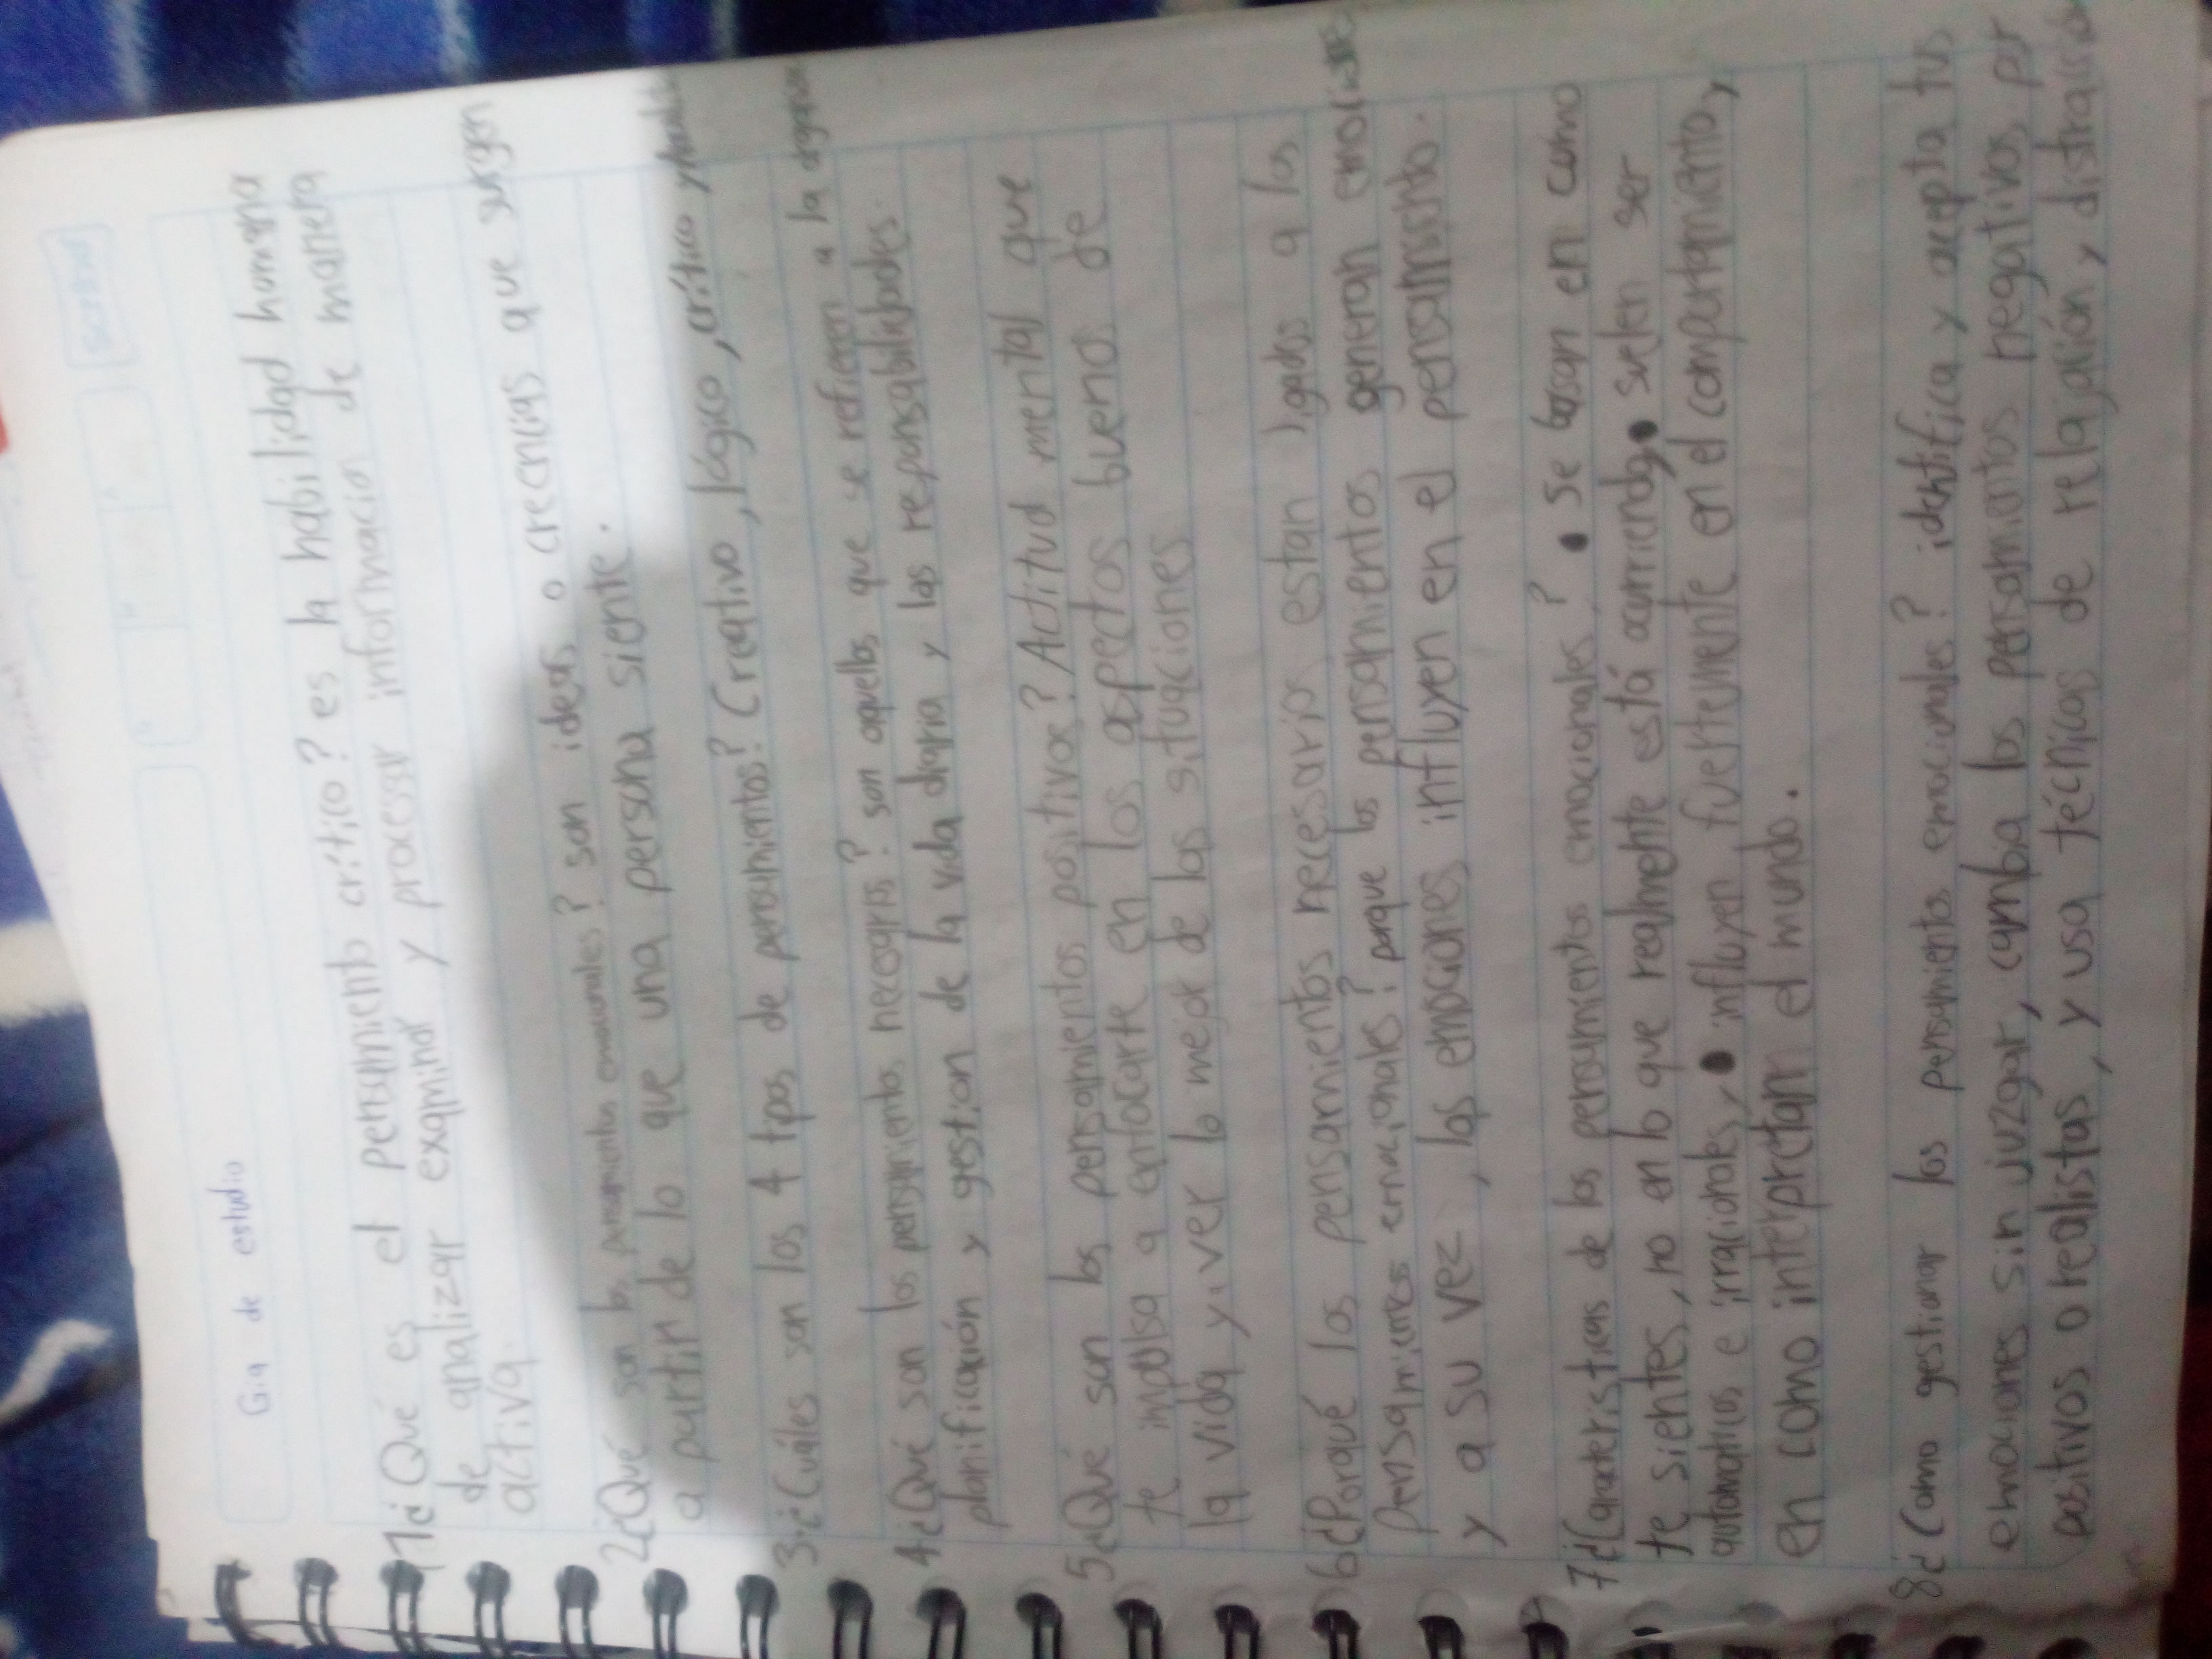 Gia de estudio
1¿Qué es el pensamiento crítico? es la habilidad humana
de analizar examinar y procesar informacion de manera
activa.
2¿Qué son los pensamientos emocionales? son ideas o creencias que surgen
a partir de lo que una persona siente.
3.¿Cuáles son los 4 tipos de pensamientos? Creativo, lógico, crítico y
4¿Qué son los pensamientos necesarios? son aquellos que se refieren a la
planificación y gestion de la vida diaria y las responsabilidades.
5¿Qué son los pensamientos positivos? Actitud mental que
te impulsa a enfocarte en los aspectos buenos de
la vida y ver lo mejor de las situaciones
6¿Porqué los pensamientos necesarios estan ligados a los
pensamientos emocionales? porque los pensamientos generan emociones
y a su vez, las emociones influyen en el pensamiento.
7¿Caracteristicas de los pensamientos emocionales? • Se basan en como
te sientes, no en lo que realmente está ocurriendo, • suelen ser
automaticos e irracionales, • influyen fuertemente en el comportamiento y
en como interpretan el mundo.
8¿Como gestionar los pensamientos emocionales? identifica y acepta tus
emociones sin juzgar, cambia los pensamientos negativos por
positivos o realistas, y usa técnicas de relajación y distraisión